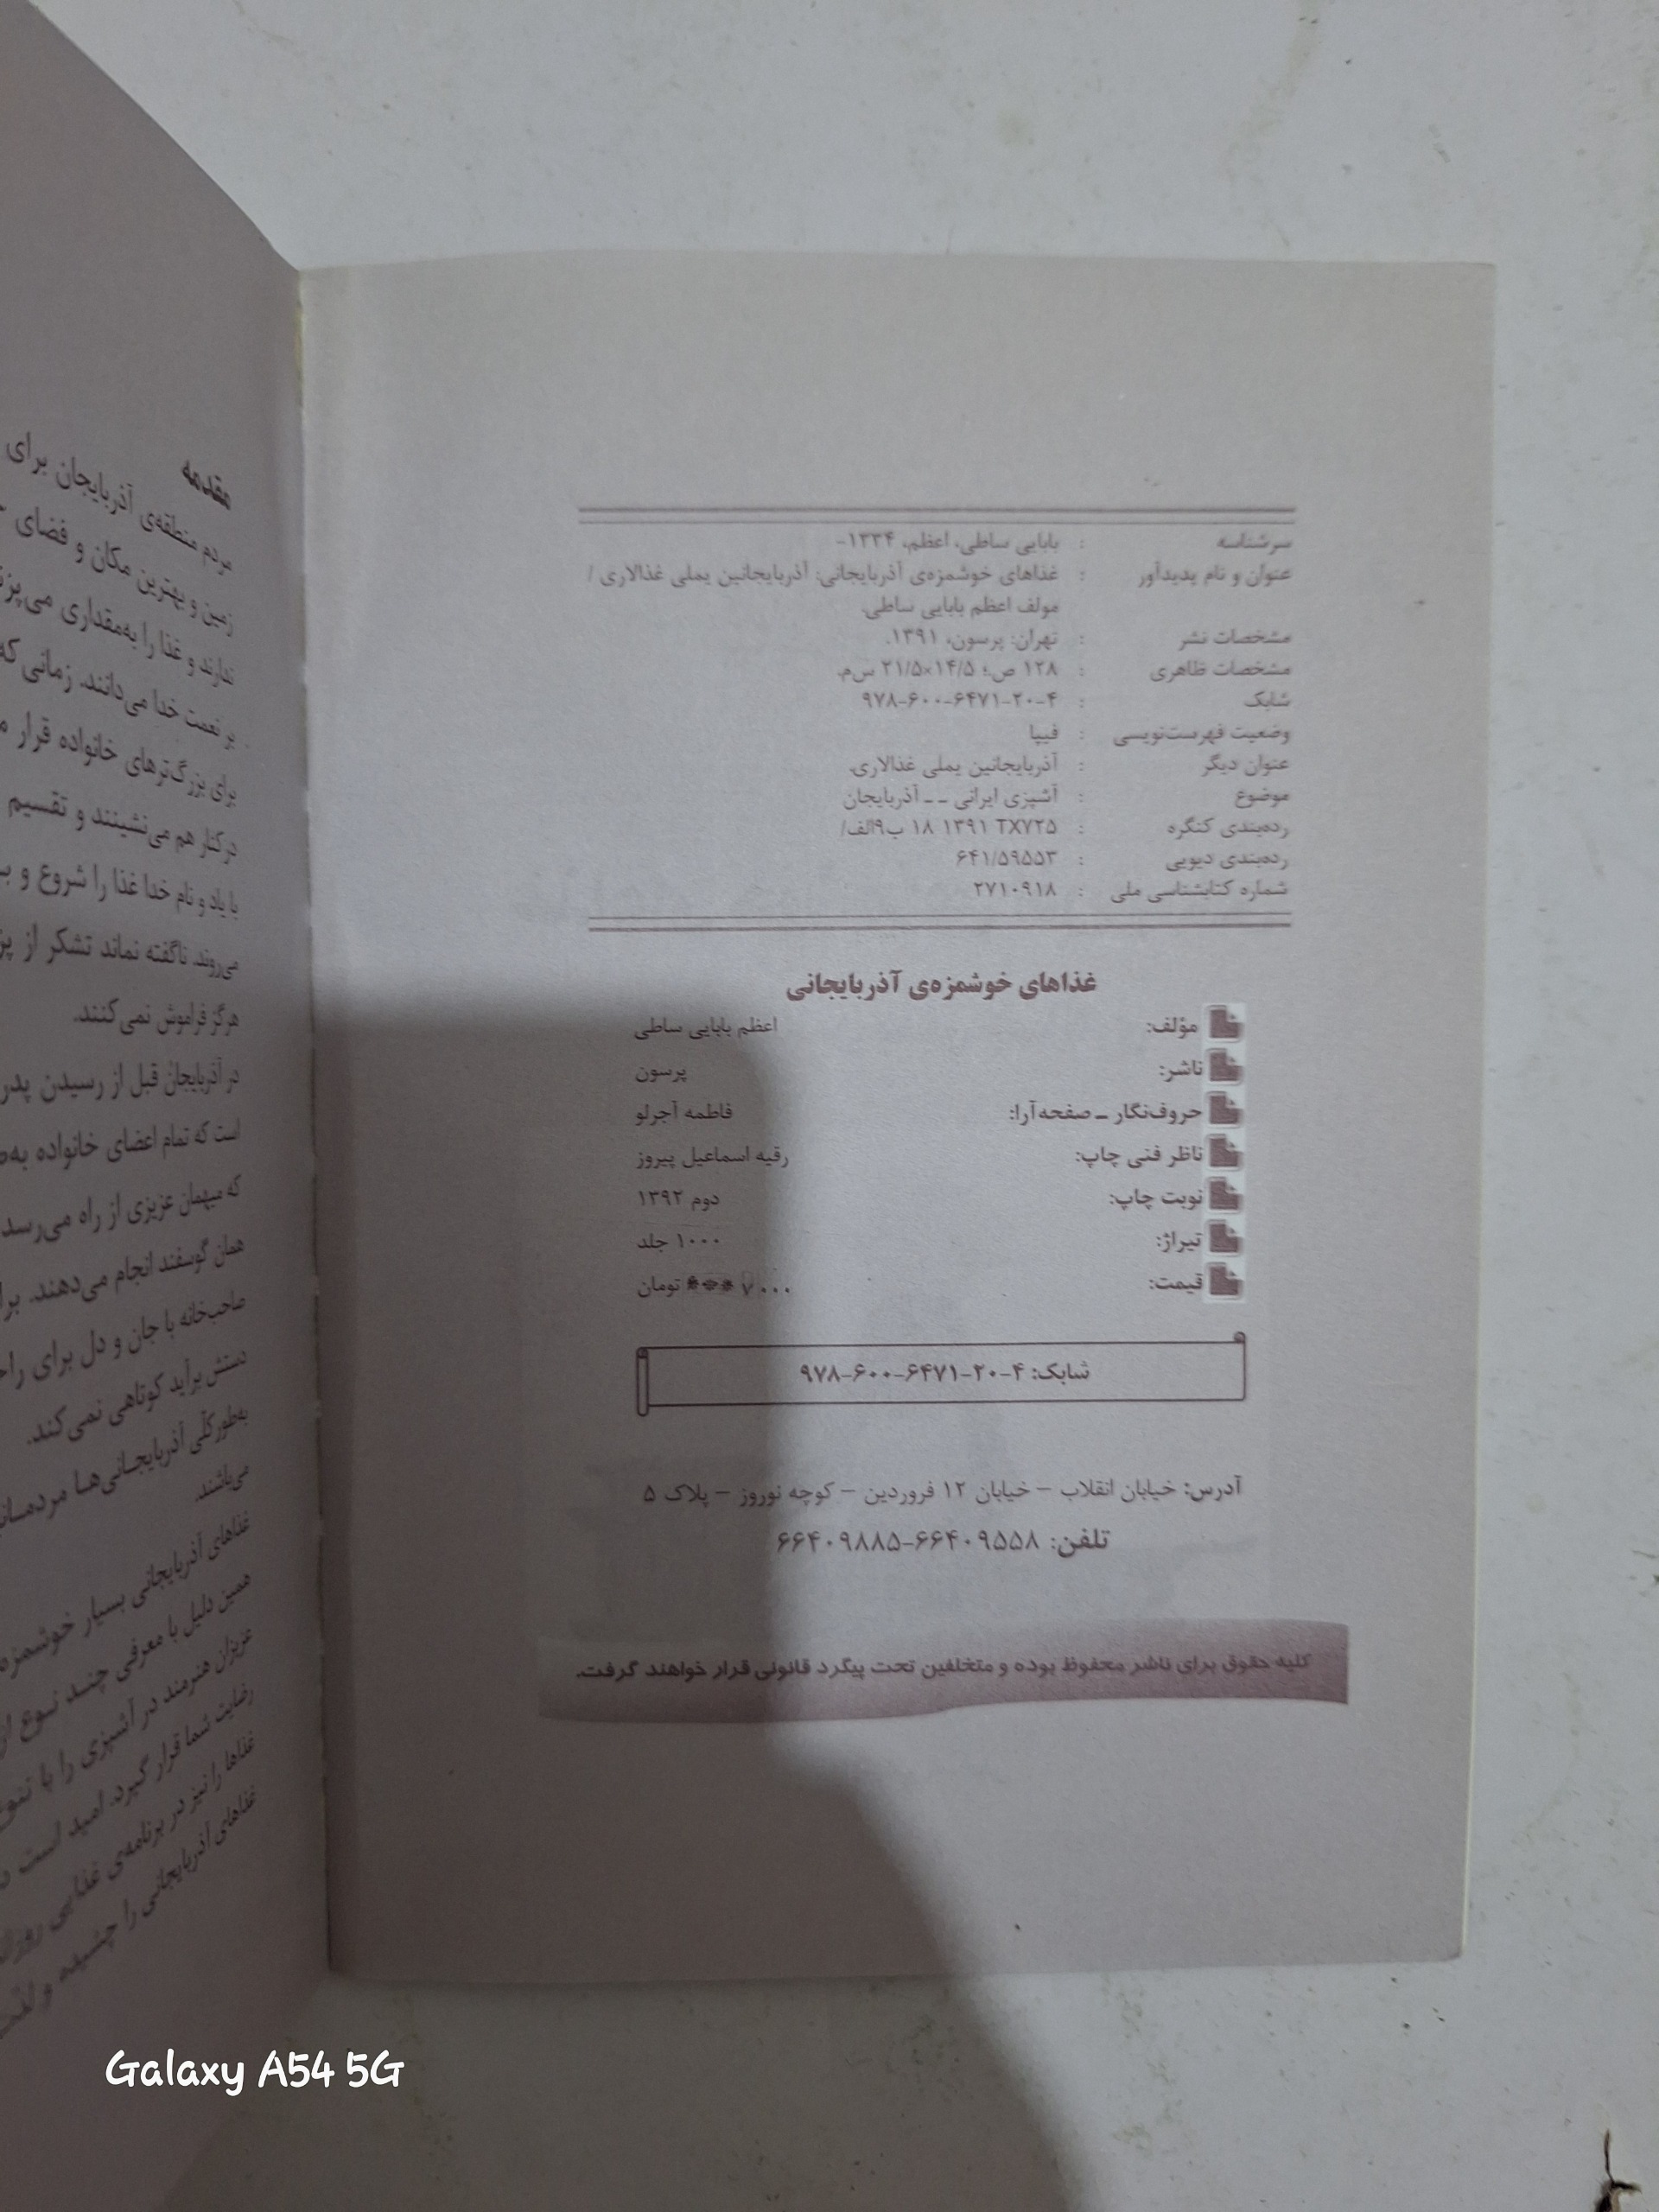 سرشناسه : بابایی ساطی، اعظم، ۱۳۳۴-
عنوان و نام پدیدآور : غذاهای خوشمزه‌ی آذربایجانی: آذربایجانین یملی غذالاری /
مولف اعظم بابایی ساطی.
مشخصات نشر : تهران: پرسون، ۱۳۹۱.
مشخصات ظاهری : ۱۲۸ ص.؛ ۱۴/۵×۲۱/۵ س‌م.
شابک : ۹۷۸-۶۰۰-۶۴۷۱-۲۰-۴
وضعیت فهرست‌نویسی : فیپا
عنوان دیگر : آذربایجانین یملی غذالاری.
موضوع : آشپزی ایرانی ـ ـ آذربایجان
رده‌بندی کنگره : TX۷۲۵ ۱۳۹۱ ۱۸ ب۹الف/
رده‌بندی دیویی : ۶۴۱/۵۹۵۵۳
شماره کتابشناسی ملی : ۲۷۱۰۹۱۸
غذاهای خوشمزه‌ی آذربایجانی
مؤلف: اعظم بابایی ساطی
ناشر: پرسون
حروف‌نگار ـ صفحه‌آرا: فاطمه آجرلو
ناظر فنی چاپ: رقیه اسماعیل پیروز
نوبت چاپ: دوم ۱۳۹۲
تیراژ: ۱۰۰۰ جلد
قیمت: ۷۰۰۰ تومان
شابک: ۴-۲۰-۶۴۷۱-۶۰۰-۹۷۸
آدرس: خیابان انقلاب – خیابان ۱۲ فروردین – کوچه نوروز – پلاک ۵
تلفن: ۶۶۴۰۹۵۵۸-۶۶۴۰۹۸۸۵
کلیه حقوق برای ناشر محفوظ بوده و متخلفین تحت پیگرد قانونی قرار خواهند گرفت.
مقدمه
مردم منطقه‌ی آذربایجان برای
زمین و بهترین مکان و فضای
ندارند و غذا را به‌مقداری می‌پزند
بر نعمت خدا می‌دانند. زمانی که
برای بزرگ‌ترهای خانواده قرار
درکنار هم می‌نشینند و تقسیم
با یاد و نام خدا غذا را شروع و
می‌روند. ناگفته نماند تشکر از
هرگز فراموش نمی‌کنند.
در آذربایجان قبل از رسیدن پدر
است که تمام اعضای خانواده
که میهمان عزیزی از راه می‌رسد
همان گوسفند انجام می‌دهند.
صاحب‌خانه با جان و دل برای
دستش برآید کوتاهی نمی‌کند.
به‌طورکلّی آذربایجـانی‌هـا
می‌باشند.
غذاهای آذربایجانی بسیار خوشمزه
همین دلیل با معرفی چنـد نـوع از
عزیزان هنرمند در آشپزی را با
رضایت شما قرار گیرد. امید است
غذاها را نیز در برنامه‌ی غذایی
غذاهای آذربایجانی را چشیده و
Galaxy A54 5G